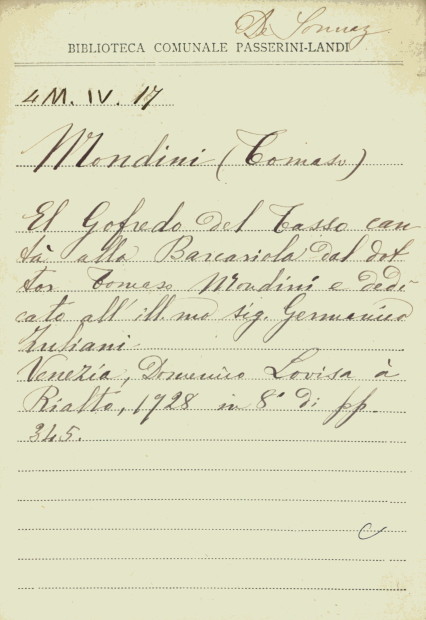 De Sonnaz
BIBLIOTECA COMUNALE PASSERINI-LANDI
4 M. IV. 17
Mondini (Tomaso)
El Gofredo del Tasso can
tà alla Barcariola dal dot
tor Tomaso Mondini e dedi-
cato all'ill mo sig. Germanico
Zuliani.
Venezia, Domenico Lovisa à
Rialto, 1728 in 8° di pp.
345.